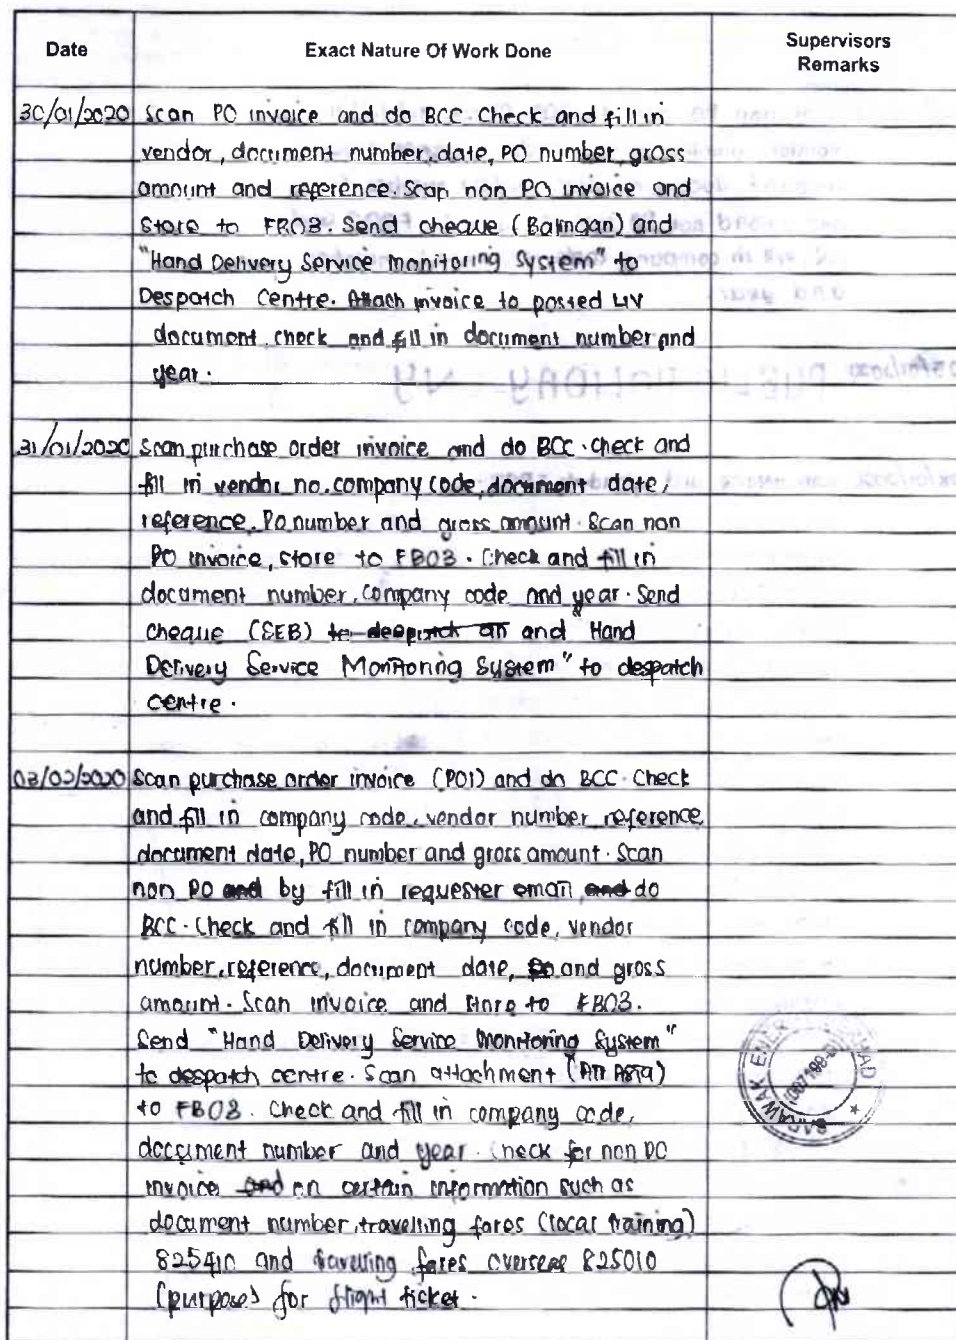 Date Exact Nature Of Work Done Supervisors
Remarks
30/01/2020 Scan PO invoice and do BCC Check and fill in
vendor, document number, date, PO number, gross
amount and reference. Scan non PO invoice and
store to FB03. Send cheque (Balingan) and
"Hand Delivery Service Monitoring System" to
Despatch Centre. Attach invoice to posted LIV
document, check and fill in document number and
year.
31/01/2020 Scan purchase order invoice and do BCC. Check and
fill in vendor no. company code, document date,
reference, PO number and gross amount. Scan non
PO invoice, store to FB03. Check and fill in
document number, company code and year. Send
cheque (SEB) to despatch an and "Hand
Delivery Service Monitoring System" to despatch
centre.
03/02/2020 Scan purchase order invoice (POI) and do BCC. Check
and fill in company code, vendor number reference
document date, PO number and gross amount. Scan
non PO and by fill in requester email, and do
BCC. Check and fill in company code, vendor
number, reference, document date, PO and gross
amount. Scan invoice and store to FB03.
Send "Hand Delivery Service Monitoring System"
to despatch centre. Scan attachment (Air Asia)
to FB03. Check and fill in company code,
document number and year. Check for non PO
invoice and on certain information such as
document number, travelling fares (local training)
825410 and travelling fares overseas 825010
(purposes) for flight ticket.
SARAWAK ENERGY BERHAD